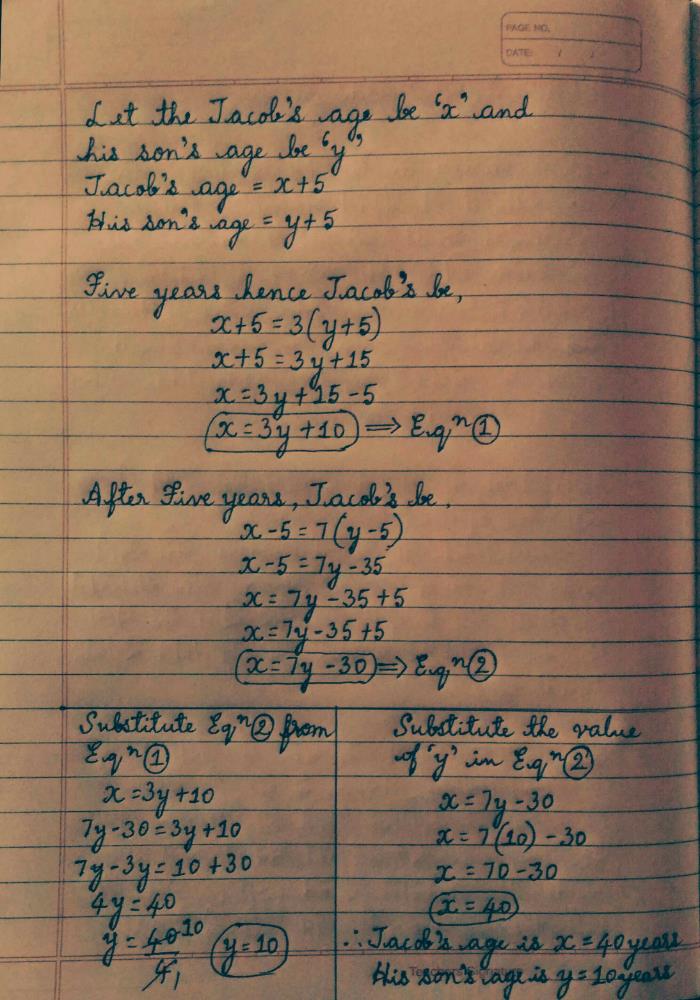 PAGE NO.
DATE: / /
Let the Jacob's age be 'x' and
his son's age be 'y'
Jacob's age = x+5
His son's age = y+5
Five years hence Jacob's be,
x+5 = 3(y+5)
x+5 = 3y+15
x = 3y+15-5
x = 3y+10 ⟹ Eqⁿ①
After Five years, Jacob's be,
x-5 = 7(y-5)
x-5 = 7y-35
x = 7y-35+5
x = 7y-35+5
x = 7y-30 ⟹ Eqⁿ②
Substitute Eqⁿ② from
Eqⁿ①
x = 3y+10
7y-30 = 3y+10
7y-3y = 10+30
4y = 40
y = 40 10 / 4 1 y = 10
Substitute the value
of 'y' in Eqⁿ②
x = 7y-30
x = 7(10)-30
x = 70-30
x = 40
∴ Jacob's age is x = 40 years
His son's age is y = 10 years